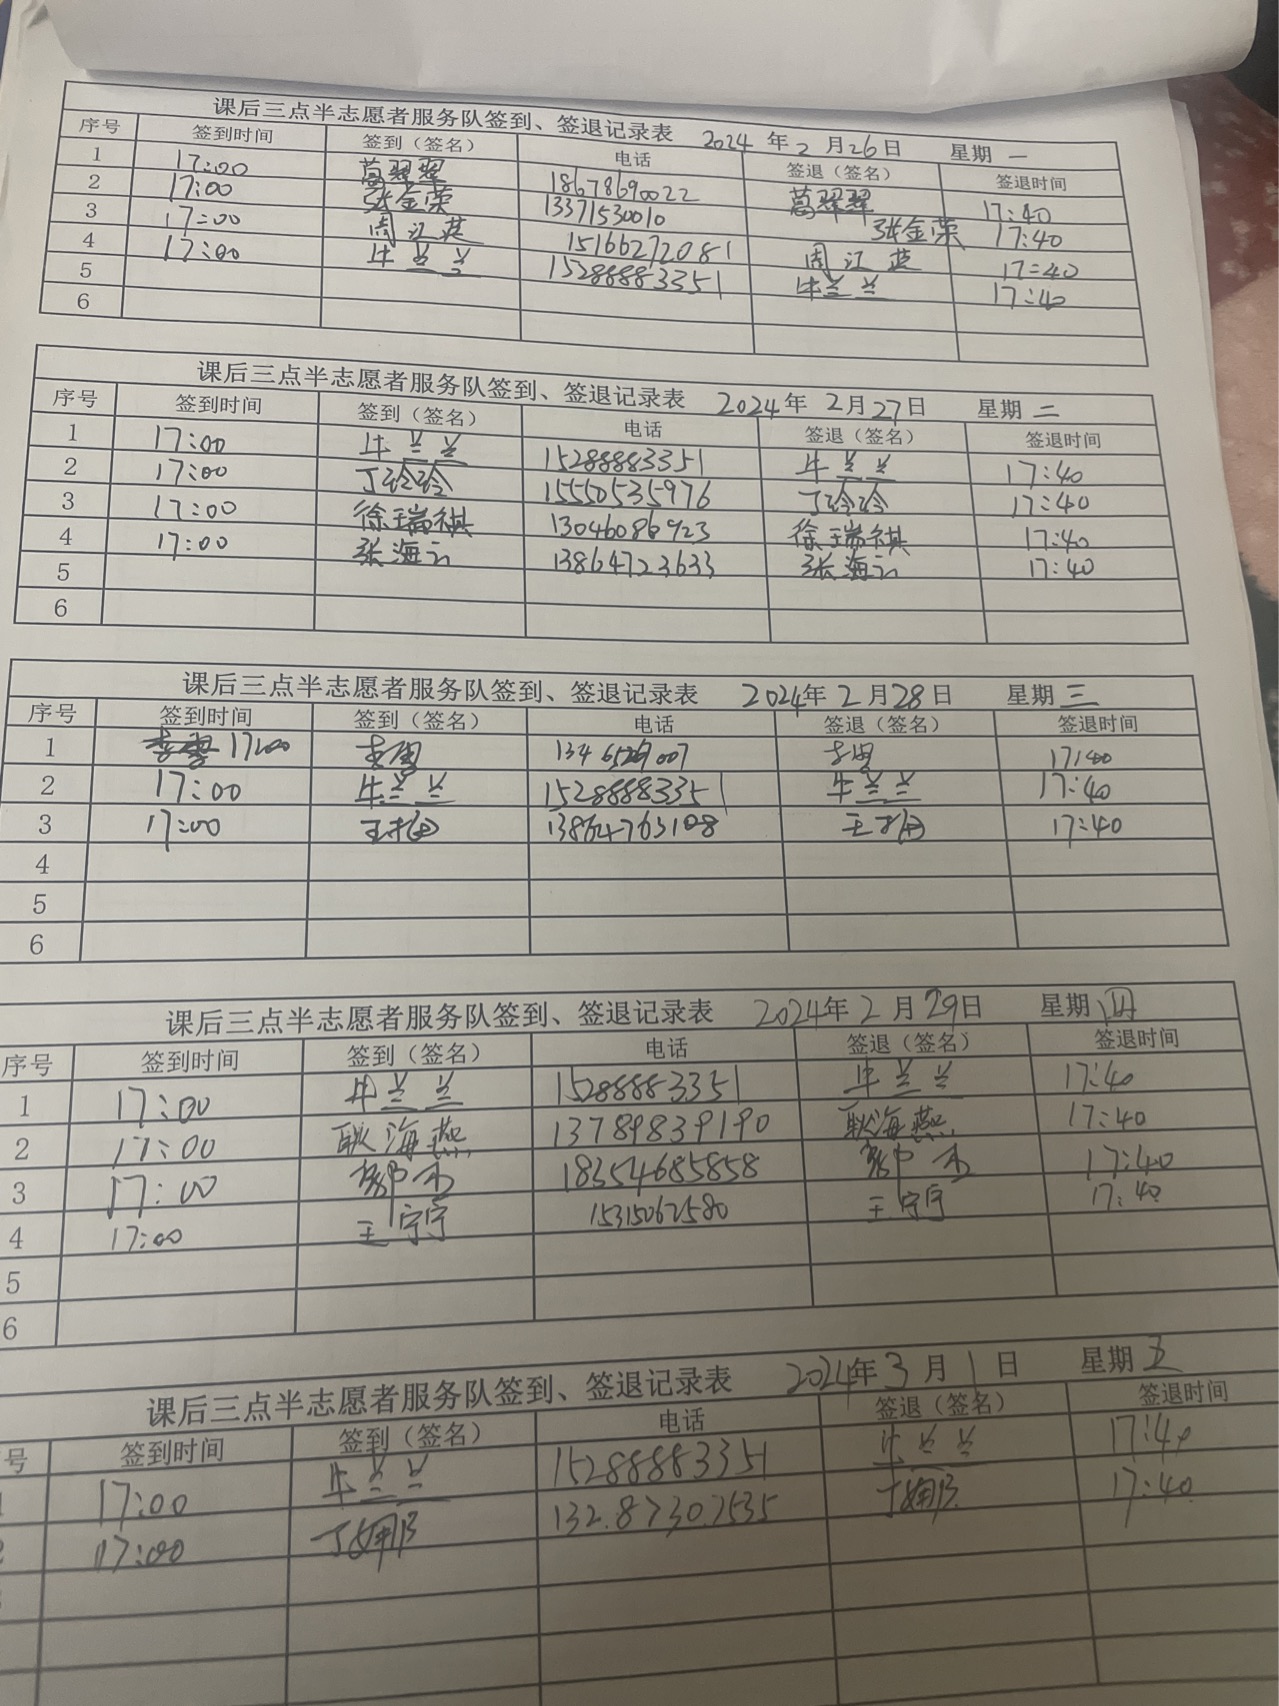 课后三点半志愿者服务队签到、签退记录表 2024 年 2 月 26 日 星期 一
序号 签到时间 签到（签名） 电话 签退（签名） 签退时间
1 17:00 葛翠翠 18678690022 葛翠翠 17:40
2 17:00 张金荣 13371530010 张金荣 17:40
3 17:00 周江燕 15166272081 周江燕 17:40
4 17:00 牛兰兰 15288883351 牛兰兰 17:40
5
6
课后三点半志愿者服务队签到、签退记录表 2024 年 2 月 27 日 星期 二
序号 签到时间 签到（签名） 电话 签退（签名） 签退时间
1 17:00 牛兰兰 15288883351 牛兰兰 17:40
2 17:00 丁玲玲 15550535976 丁玲玲 17:40
3 17:00 徐瑞祺 13046086923 徐瑞祺 17:40
4 17:00 张海云 13864723633 张海云 17:40
5
6
课后三点半志愿者服务队签到、签退记录表 2024 年 2 月 28 日 星期 三
序号 签到时间 签到（签名） 电话 签退（签名） 签退时间
1 17:00 17:40
2 17:00 牛兰兰 15288883351 牛兰兰 17:40
3 17:00 13864763108 17:40
4
5
6
课后三点半志愿者服务队签到、签退记录表 2024 年 2 月 29 日 星期 四
序号 签到时间 签到（签名） 电话 签退（签名） 签退时间
1 17:00 牛兰兰 15288883351 牛兰兰 17:40
2 17:00 耿海燕 13789839190 耿海燕 17:40
3 17:00 18354685858 17:40
4 17:00 王宁宁 15315062580 王宁宁 17:40
5
6
课后三点半志愿者服务队签到、签退记录表 2024 年 3 月 1 日 星期 五
号 签到时间 签到（签名） 电话 签退（签名） 签退时间
17:00 牛兰兰 15288883351 牛兰兰 17:40
17:00 丁娜 132.8730.7535 丁娜 17:40